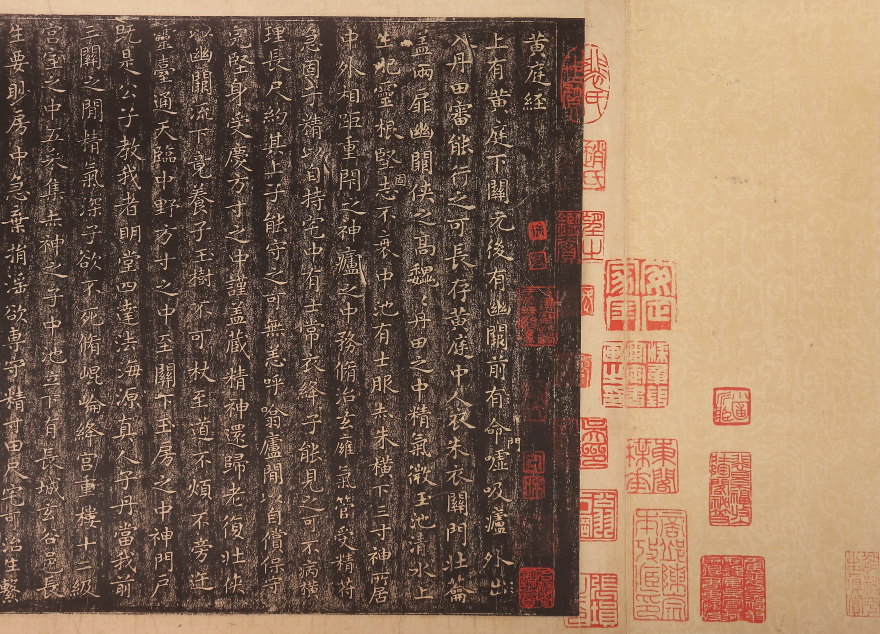 黃庭經
上有黃庭下關元後有幽闕前有命噓吸廬外出
門
入丹田審能行之可長存黃庭中人衣朱衣關門壯籥
蓋兩扉幽闕俠之高魏〻丹田之中精氣微玉池清水上
生肥靈根堅志不衰中池有士服赤朱橫下三寸神所居
固
中外相距重閉之神廬之中務脩治玄廱氣管受精符
急固子精以自持宅中有士常衣絳子能見之可不病橫
理長尺約其上子能守之可無恙呼噏廬間以自償保守
完堅身受慶方寸之中謹蓋藏精神還歸老復壯俠
以幽闕流下竟養子玉樹不可杖至道不煩不旁迕
靈臺通天臨中野方寸之中至關下玉房之中神門戶
既是公子教我者明堂四達法海源真人子丹當我前
三關之間精氣深子欲不死脩崐崘絳宮重樓十二級
宮室之中五采集赤神之子中池立下有長城玄谷邑長
生要眇房中急棄捐淫欲專守精寸田尺宅可治生繫
趙氏
張塤